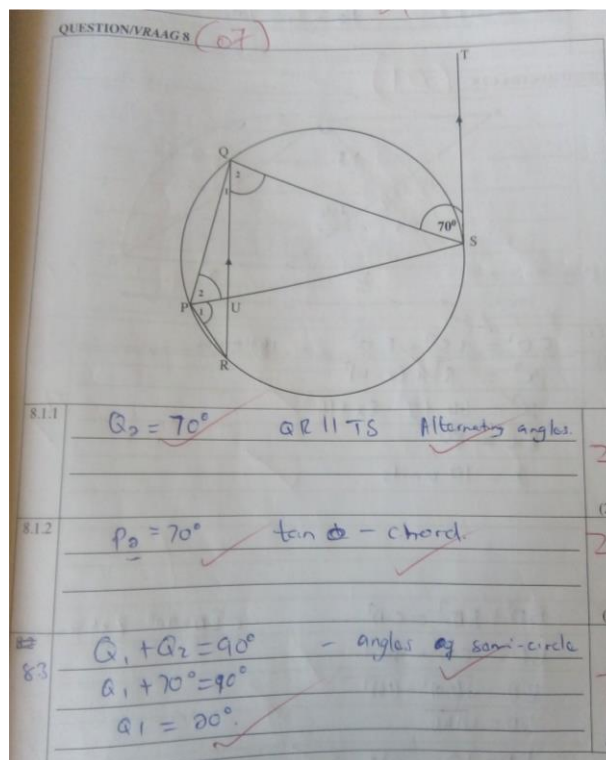 QUESTION/VRAAG 8 (07)
T
Q
2
1
70°
S
2
P
1
U
R
8.1.1 Q2 = 70° QR || TS Alternating angles.
2
8.1.2 P2 = 70° tan - chord.
2
83 Q1 + Q2 = 90° - angles of semi-circle
Q1 + 70° = 90°
Q1 = 20°.